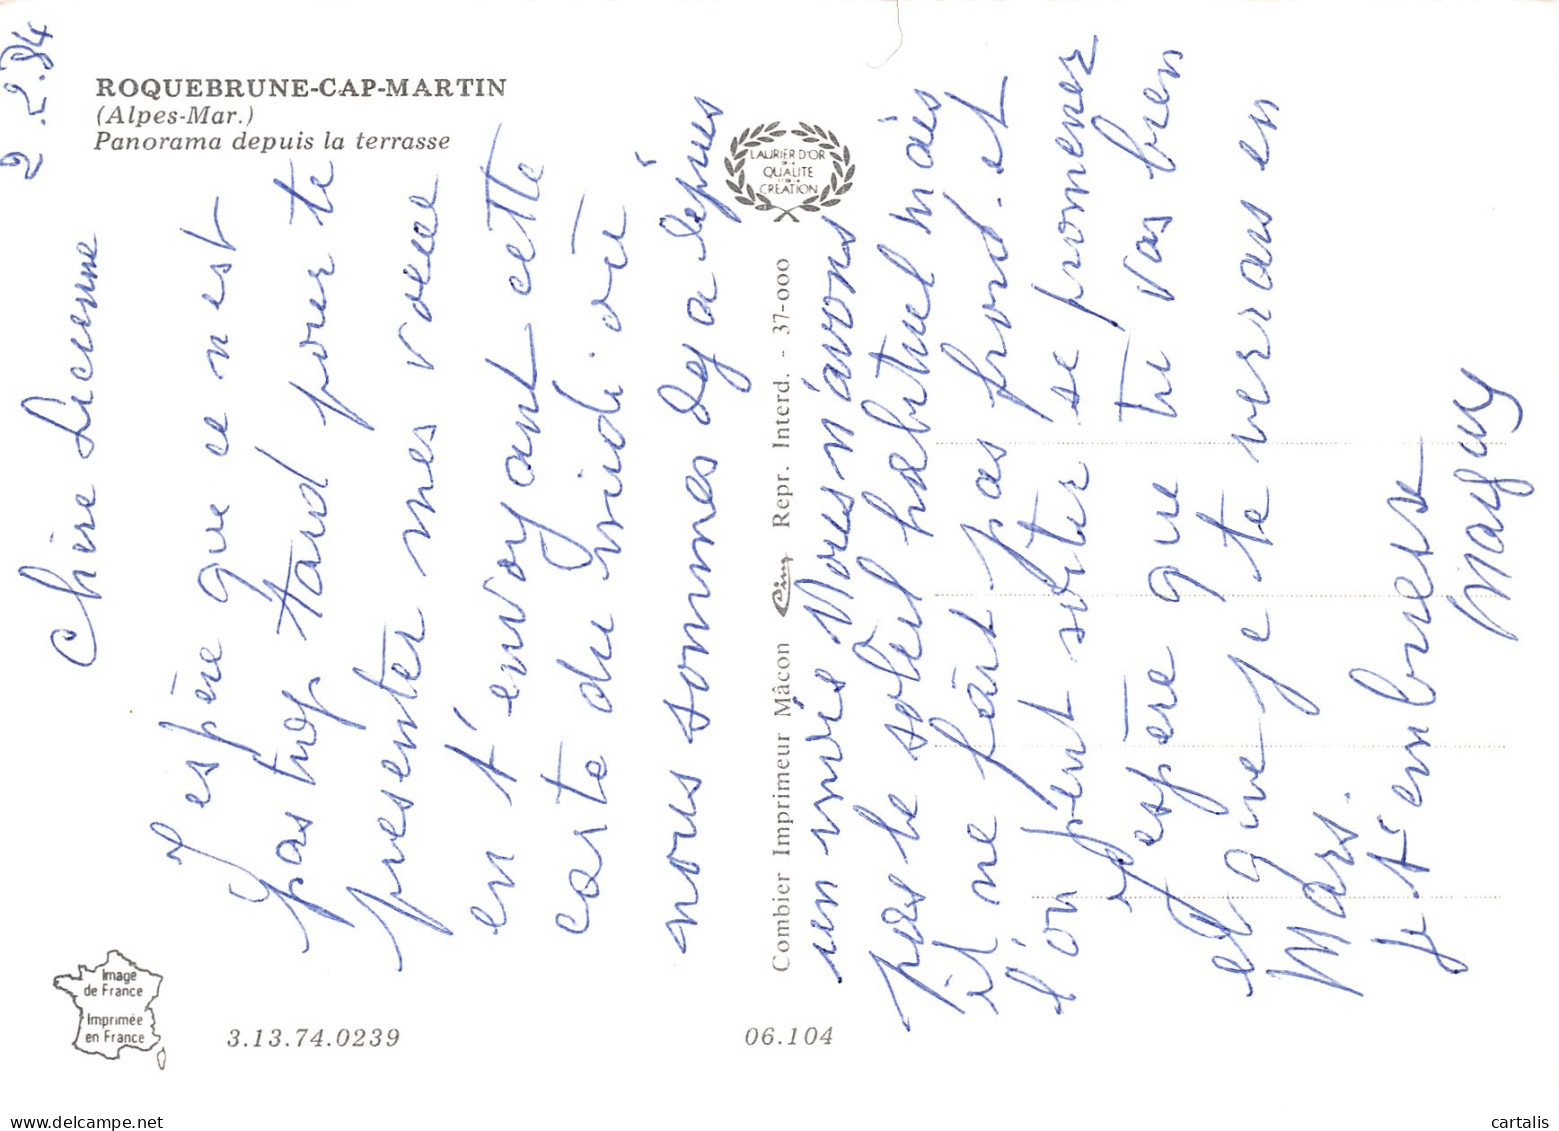 ROQUEBRUNE-CAP-MARTIN
(Alpes-Mar.)
Panorama depuis la terrasse
2.2.84
Chère Lucienne
J'espère que ce n'est
pas trop tard pour te
presenter mes voeux
en t'envoyant cette
carte du midi où
nous sommes deja depuis
un mois Nous n'avons
pas le soleil habituel mais
il ne fait pas froid. et
l'on peut sortir se promener
J'espère que tu vas bien
et que je te verrais en
Mars.
je t'embrasse
LAURIER D'OR
DE LA
QUALITE
ET DE LA
CREATION
Combier Imprimeur Mâcon Cim Repr. Interd. - 37-000
Image
de France
Imprimée
en France
3.13.74.0239
06.104
cartalis